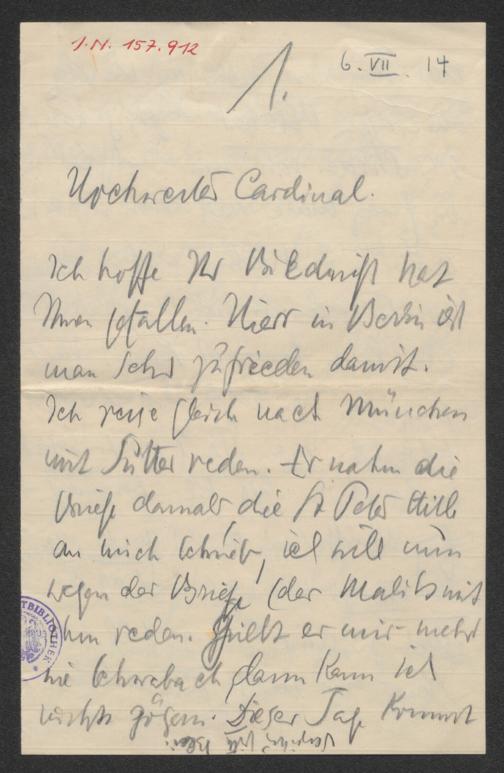 I.N. 157.912
1.
6. VII. 14
Hochwerter Cardinal.
Ich hoffe Ihr Bildniß hat
Ihnen gefallen. Hier in Berlin ist
man sehr zufrieden damit.
Ich reise gleich nach München
mit Sutter reden. Er nahm die
Briefe damals die St Peter Hille
an mich schrieb, ich will nun
wegen der Briefe (der Maliks mit
ihm reden. Giebt er mir mehr
wie Schwabach dann kann ich
nichts zögern. Dieser Tage kommt
TBIBLIOTHEK